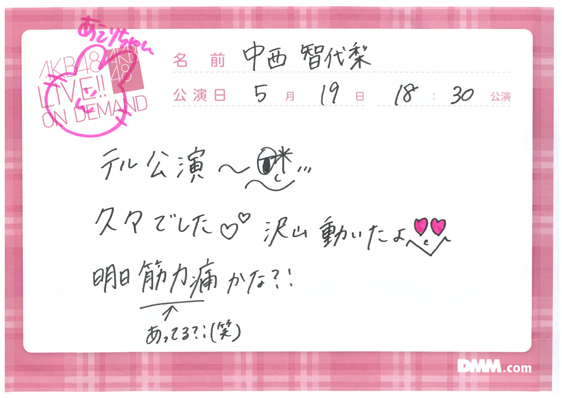 あこりちゃん
AKB48
HKT48
LIVE!!
ON DEMAND
名前 中西 智代梨
公演日 5月 19日 18:30 公演
テル公演〜
久々でした♡♡ 沢山動いたよ
明日筋力痛かな?!
↑
あってる?:(笑)
DMM.com